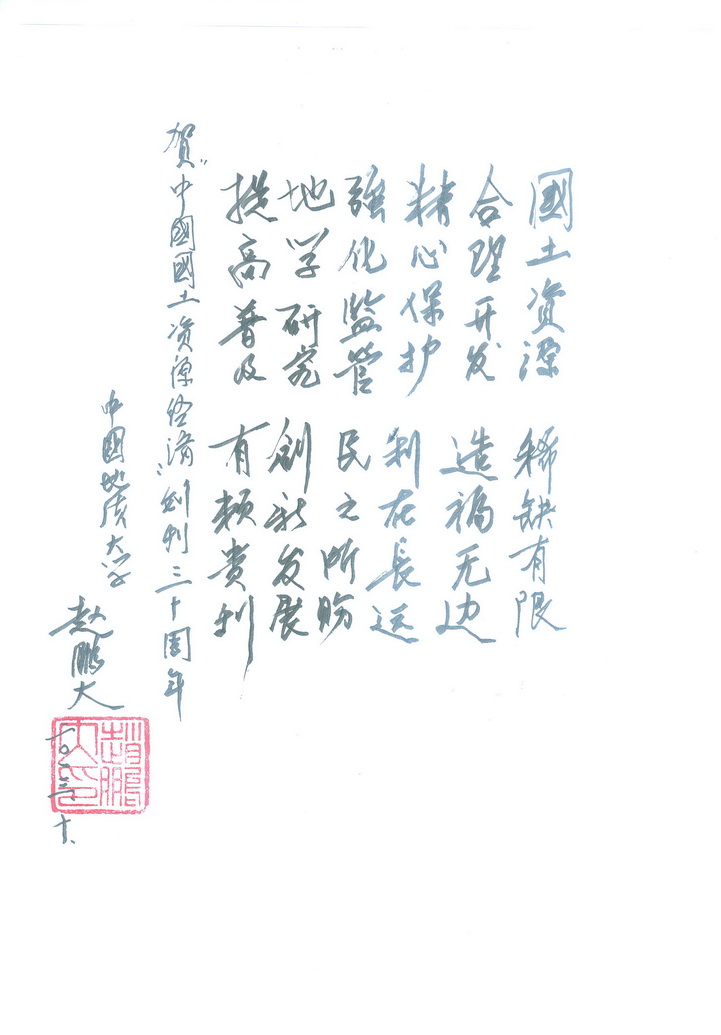 國土资源 稀缺有限
合理开发 造福无边
精心保护 利在長远
强化监管 民之所盼
地学研究 創新发展
提高普及 有赖贵刊
贺"中國國土资源经济"创刊三十周年
中國地质大学
赵鹏大
赵鹏大印